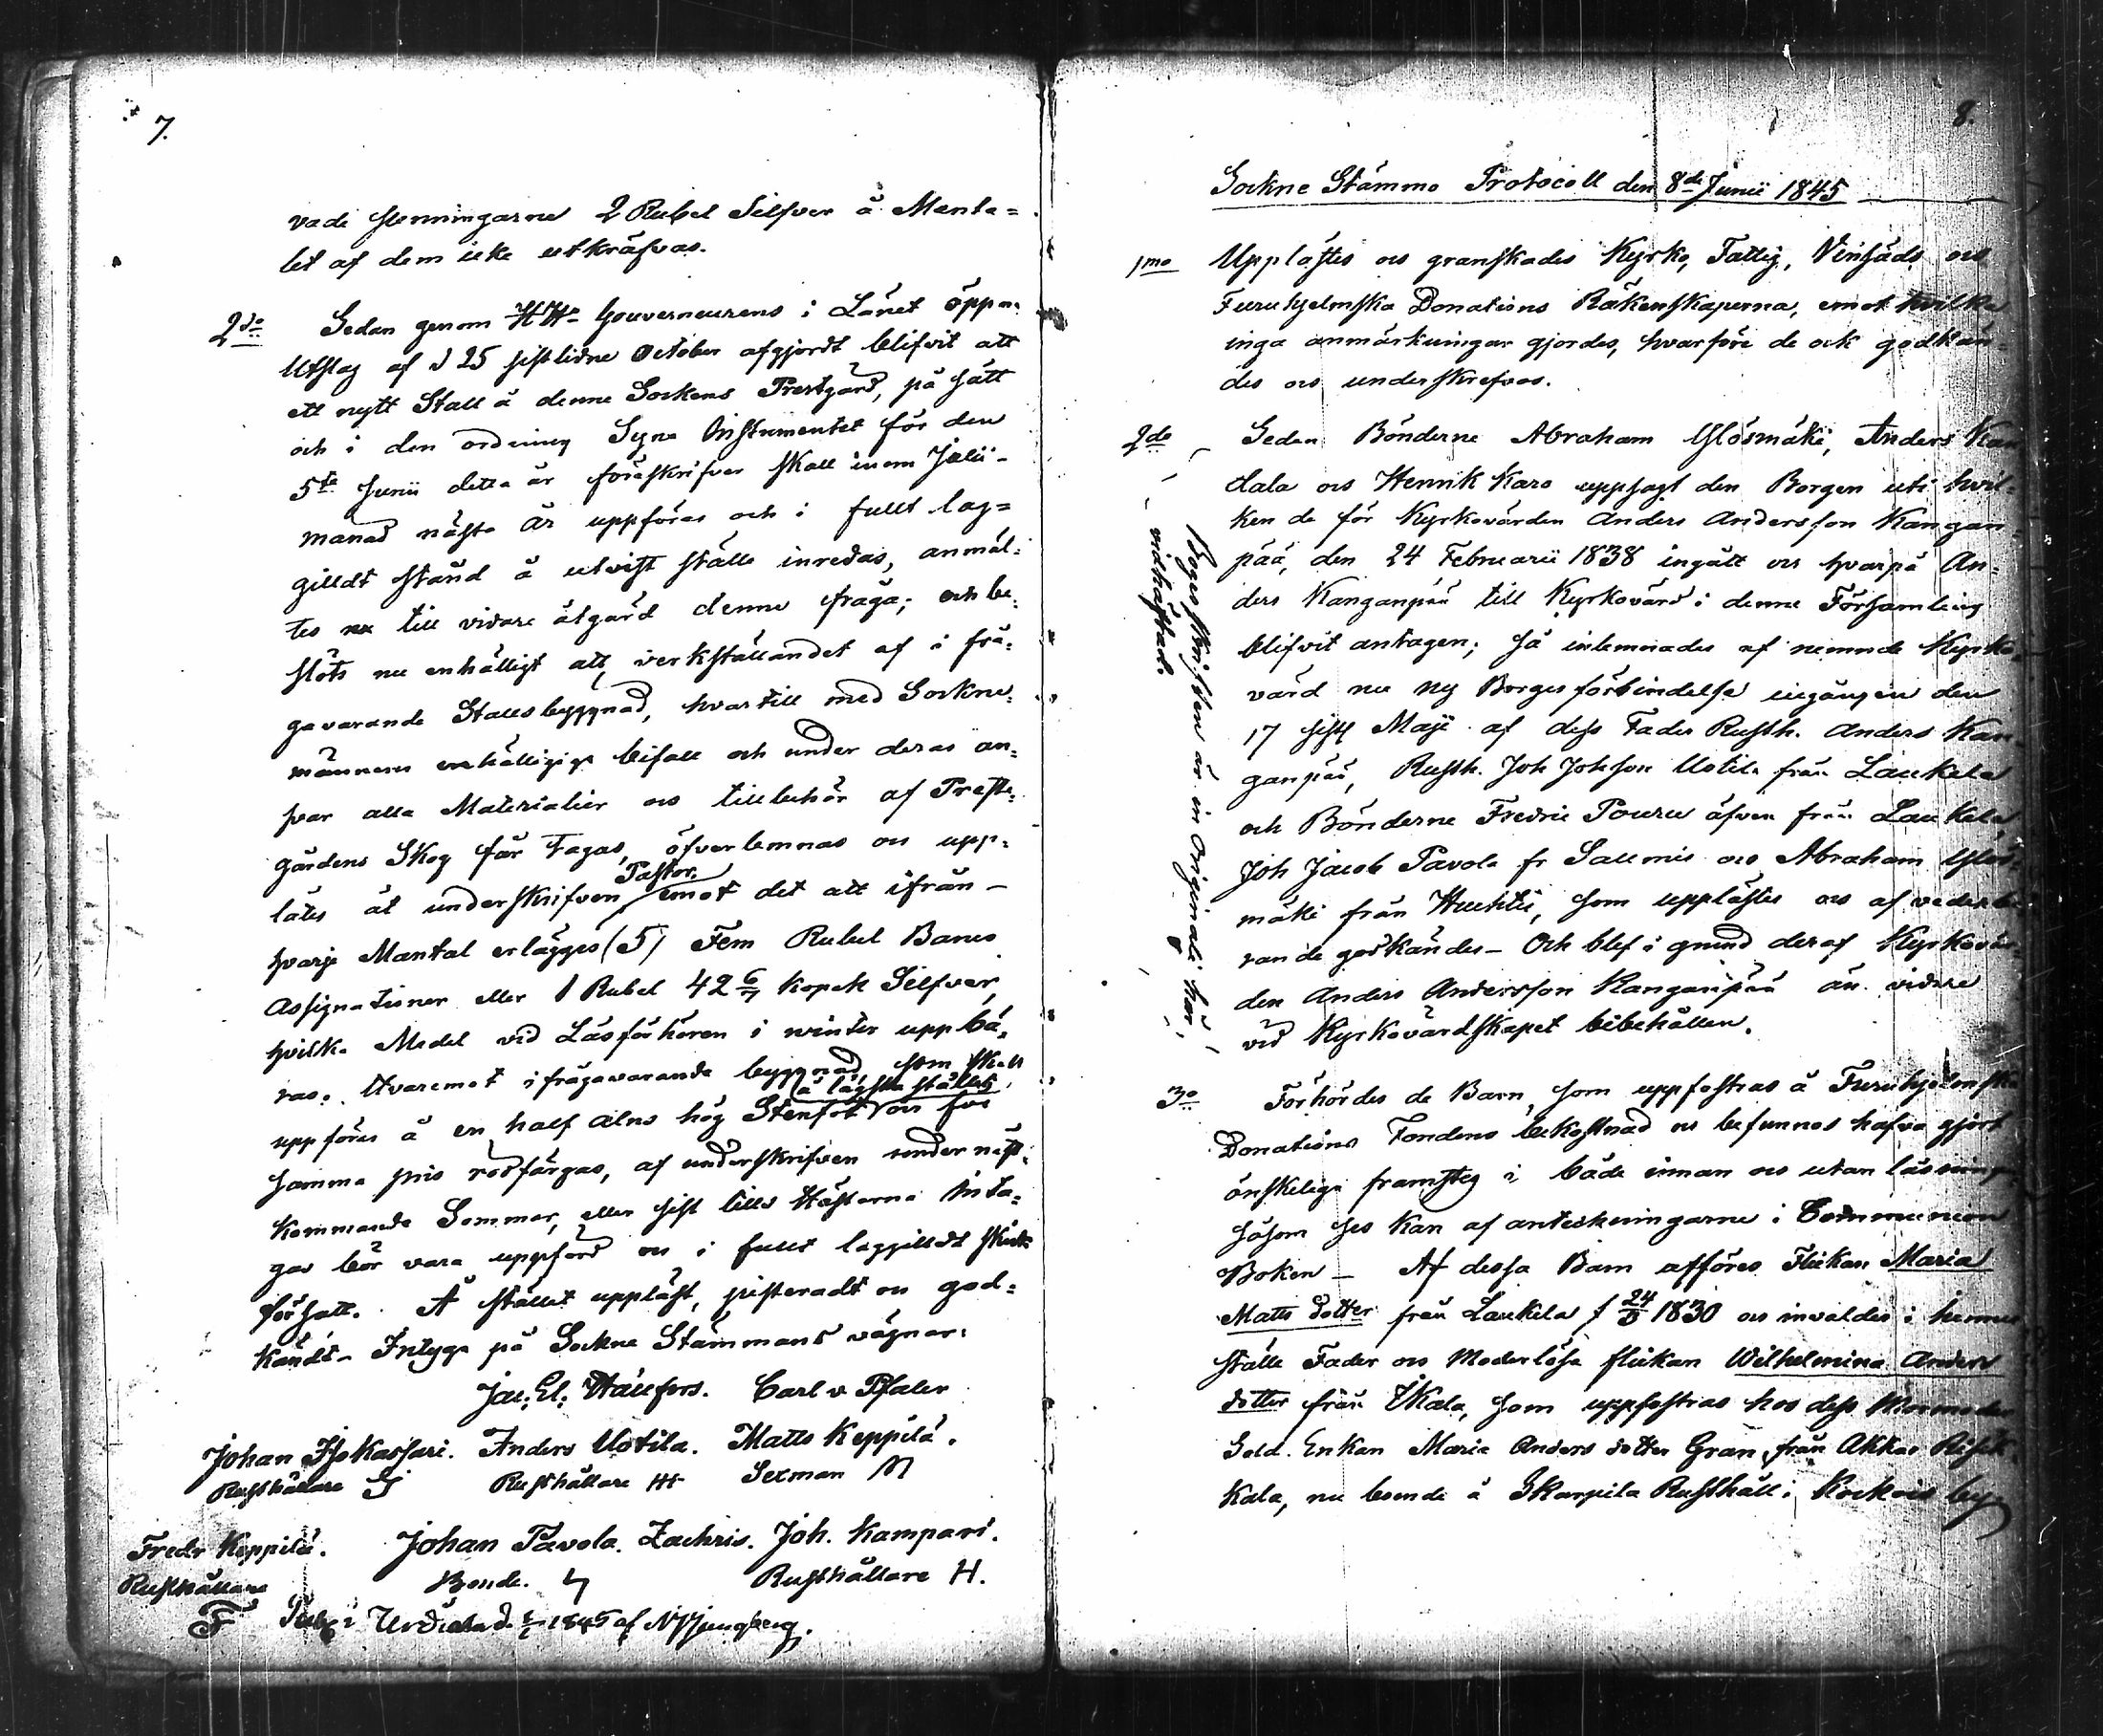 7.
vade hemningarne 2 Rubel Silfver å Manta=
let af dem icke utkräfvas.
2do Sedan genom HHr Gouverneurens i Länet öppna
Utslag af d 25 sistlidne October afgjordt blifvit att
ett nytt Stall å denne Sockens Prestgård, på sätt
och i den ordning Syne Instrumentet för den
5te Junii detta år föreskrifver skall inom Julii-
månad nästa år uppföras och i fullt lag=
gilldt stånd å utvist ställe inredas, anmäl=
tes till vidare åtgärd denne fråga; och be=
slöts nu enhälligt att, verkställandet af i frå=
gavarande Stallsbyggnad, hvartill med Sockne=
männens enhälliga bifall och under deras an=
svar alla Materialier och tillbehör af Prest=
gårdens Skog får tagas, öfverlemnas och upp=
låtes åt underskrifven Pastor, emot det att ifrån
hvarje Mantal erlägges (5) Fem Rubel Banco
Assignationer eller 1 Rubel 42 6/7 kopek Silfver,
hvilka Medel vid Läsförhören i winter uppbä=
ras. Hvaremot ifrågavarande byggnad, som skall
uppföras å en half alns hög Stenfot å lägsta stället, och för
samma pris rödfärgas, af underskrifven under näst=
kommande Sommar, eller sist tills Hästarna inta=
gas bör vara uppförd och i fullt laggilldt skick
försatt. År stället uppläst, justeradt och god=
kändt- Intyga på Sockne Stämmans vägnar:
Jac: El: Hällfors. Carl v Pfaler
Johan Isokassari. Anders Uotila. Matts Keppilä.
Rusthållare Rusthållare Sexman
Fredr Keppilä. Johan Pavola. Zachris. Joh. Kampari.
Rusthållare Bonde. Rusthållare H.
F 1845 af Ljungberg.
8.
Sockne Stämmo Protocoll den 8de Junii 1845
1mo Upplästes och granskades Kyrko, Fattig, Vinsäds och
Furuhjelmska Donations Räkenskaperna, emot hvilka
inga anmärkningar gjordes, hvarföre de ock godkän=
des och underskrefvos.
2do Sedan Bönderne Abraham Ylösmäki, Anders Kan
dala och Henrik Karo uppsagt den Borgen uti hvil=
ken de för Kyrkovärden Anders Andersson Kangan=
pää, den 24 Februarii 1838 ingått och hvarpå An=
ders Kanganpää till Kyrkovärd i denne Församling
blifvit antagen; så inlemnades af nemnde Kyrko=
värd nu ny Borgesförbindelse ingången den
17 sistl Maji af dess Fader Rusth. Anders Kan=
ganpää, Rusth. Joh Johsson Uotila från Laukela
och Bönderne Fredric Pouru äfven från Laukela,
Joh Jacob Pavola fr Sallmis och Abraham Ylös=
mäki från Huhtis, som upplästes och af vederbö
rande godkändes- Och blef i grund deraf Kyrkovär=
den Anders Andersson Kanganpää än vidare
vid Kyrkovärdskapet bibehållen.
Borges skriften är in Originali här
vidhäftad.
3o Förhördes de Barn, som uppfostras å Furuhjelmska
Donations Fondens bekostnad och befunnos hafva gjort
önskeliga framsteg i både innan och utan läsning,
såsom ses kan af anteckningarne i Communion
Boken - Af dessa Barn afföres Flickan Maria
Matts dotter från Laukela f 24/ 1830 och invaldes i hennes
ställe Fader och Moderlösa flickan Wilhelmina Anders
dotter från Ekala, som uppfostras hos dess Mormoder
Sold. Enkan Maria Anders dotter Gran, från Akkas
Kala, nu boende å Skarpila Rusthåll i Kockois by